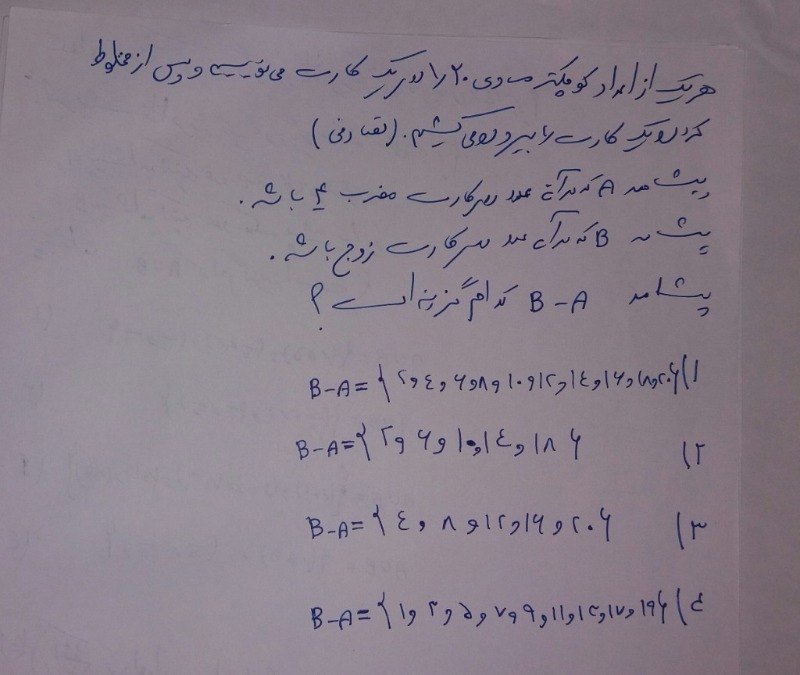 هر یک از اعداد کوچکتر مساوی ۲۰ را در یک کارت می‌نویسیم و پس از مخلوط
کردن یک کارت را بیرون می‌کشیم. (تصادفی)
پیشامد A که در آن عدد هر کارت مضرب ۴ باشد.
پیشامد B که در آن عدد هر کارت زوج باشد.
پیشامد B-A کدام گزینه است؟
۱) B-A={۲و٤و۶و۸و۱۰و۱۲و۱٤و۱۶و۱۸و۲۰}
۲) B-A={۲و۶و۱۰و۱٤و۱۸}
۳) B-A={٤و۸و۱۲و۱۶و۲۰}
٤) B-A={۱و۳و۵و۷و۹و۱۱و۱۳و۱۷و۱۹}